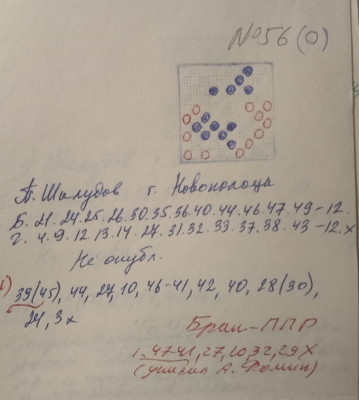 №56(0)
П. Шклудов г. Новополоцк
Б. 21. 24. 25. 26. 30. 35. 36. 40. 44. 46. 47. 49-12.
Ч. 4. 9. 12. 13. 14. 27. 31. 32. 33. 37. 38. 43-12. х
Не опубл.
39(45), 44, 27, 10, 46-41, 42, 40, 28(30),
24, 3х
Брак-ППР
1. 47-41, 27, 10, 32, 29Х
(указал А. Фомин)